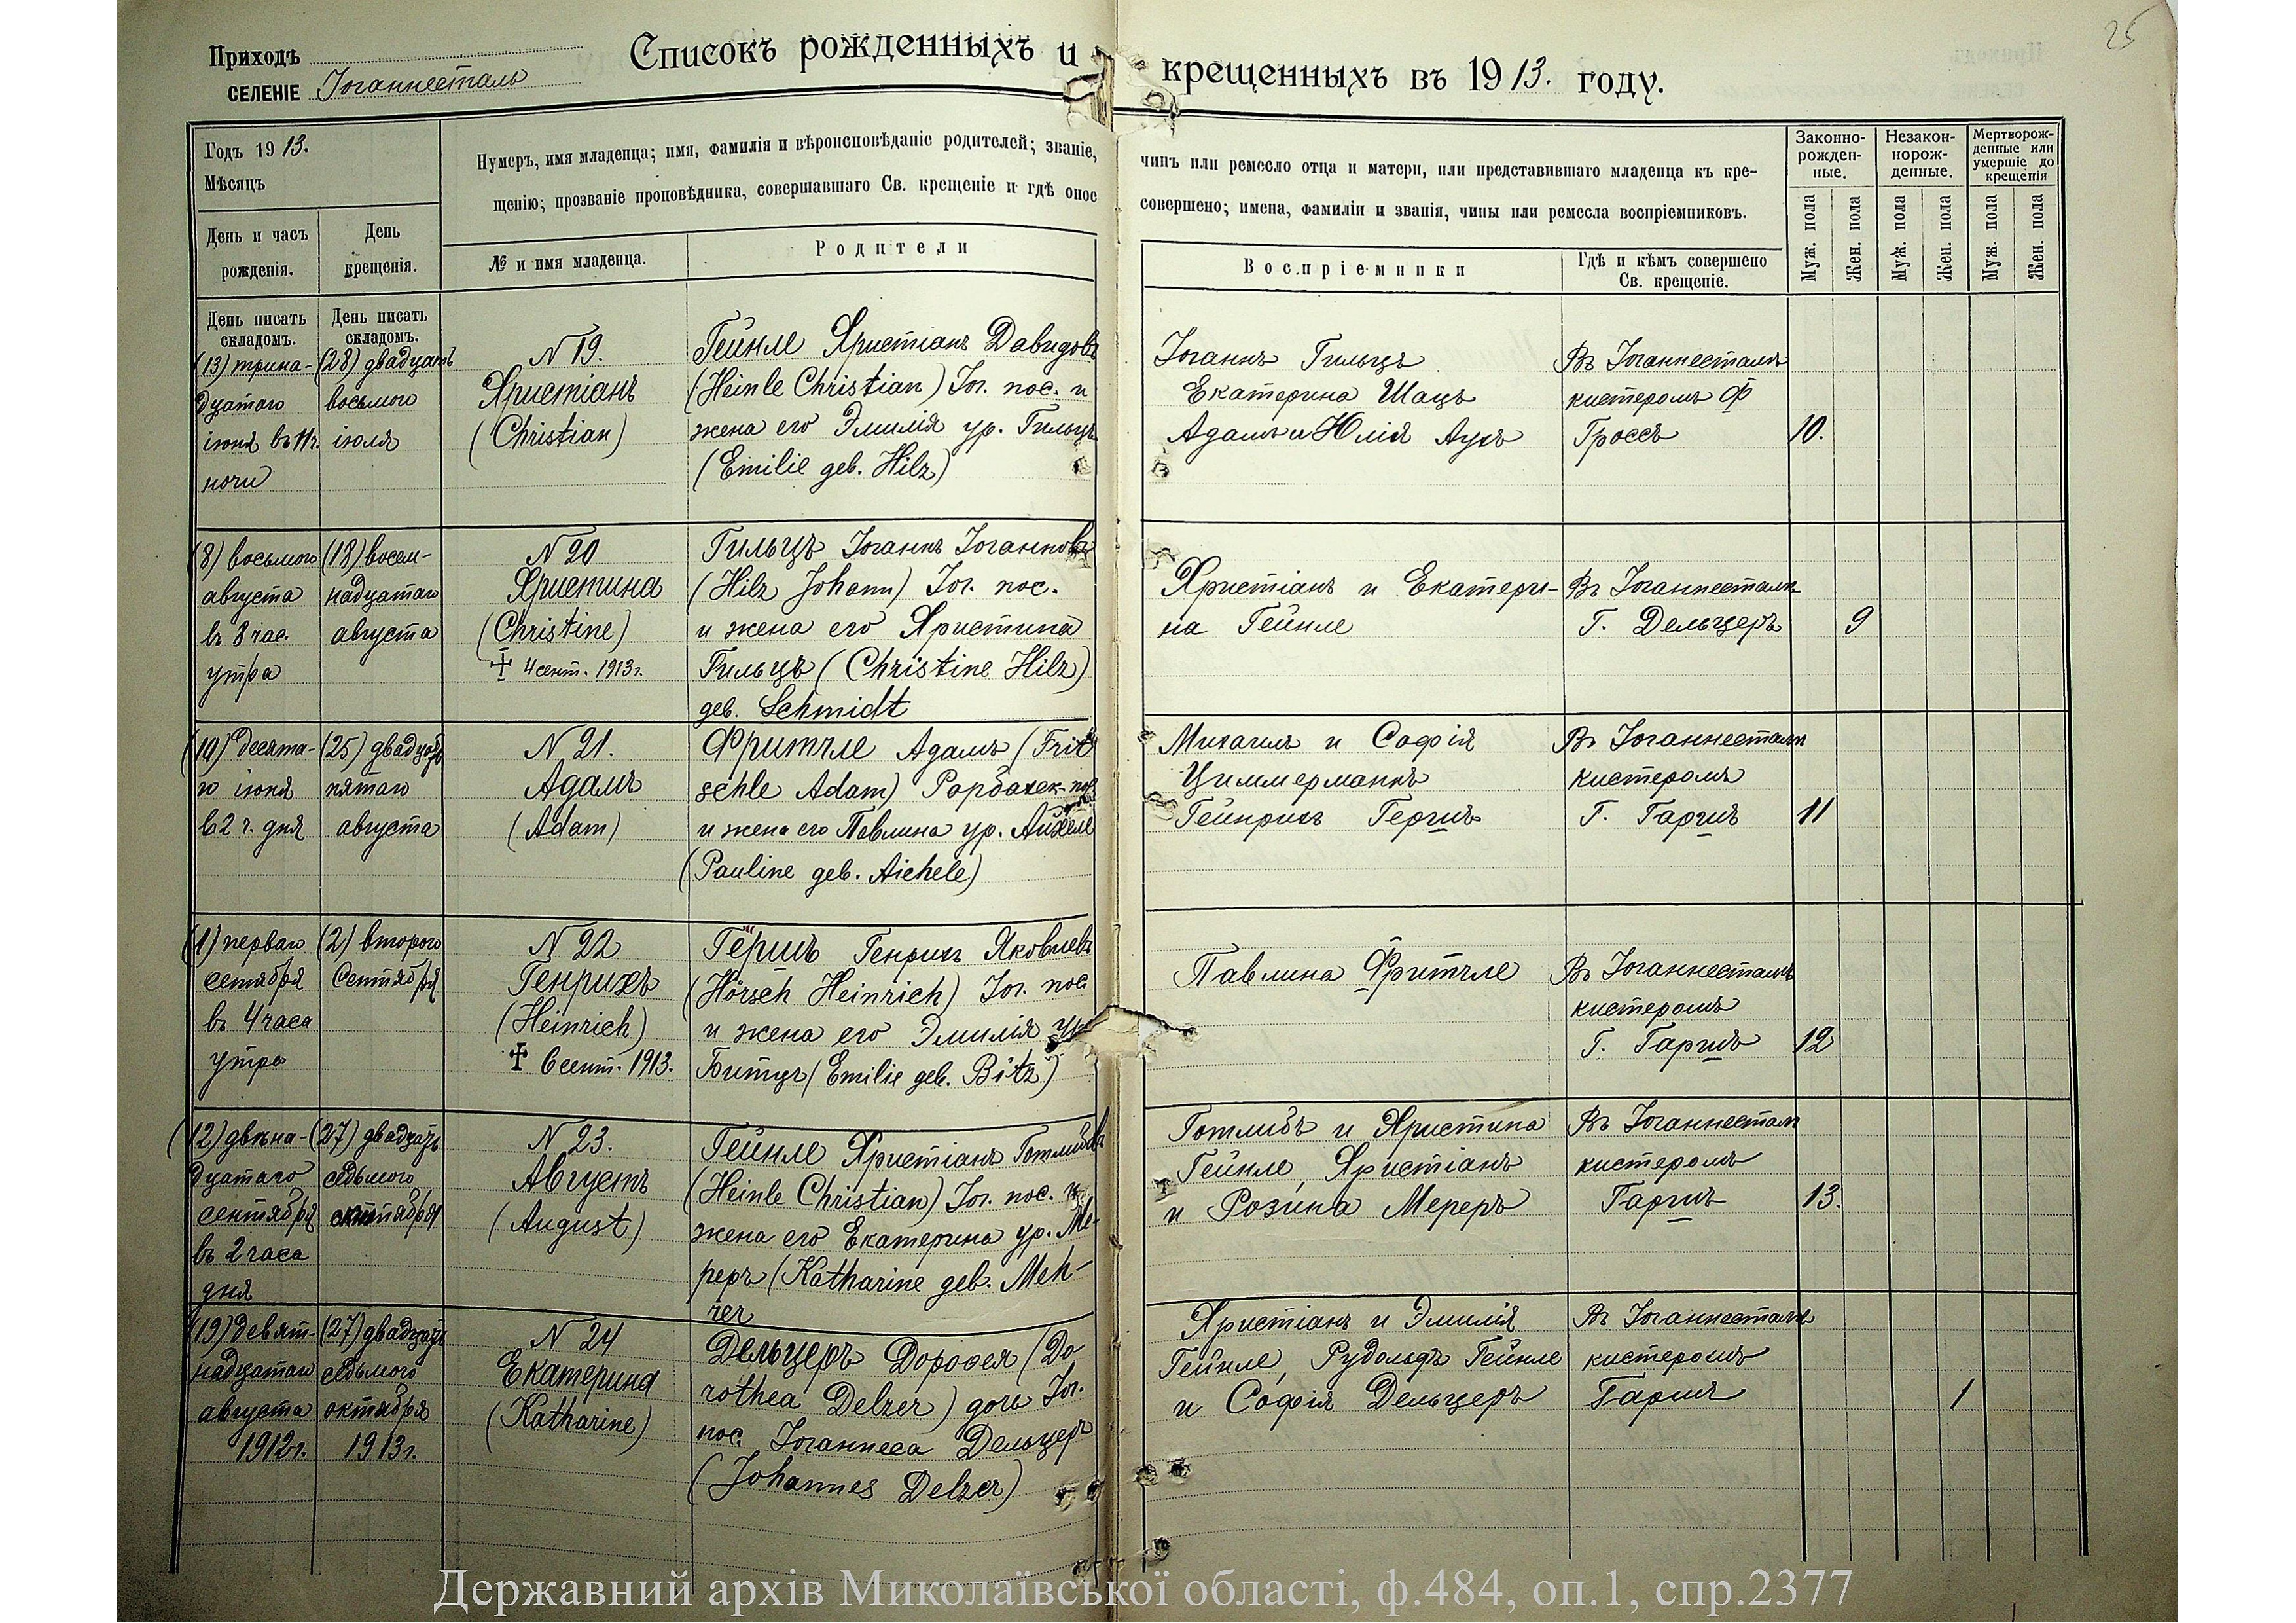 25
Приходъ
СЕЛЕНІЕ Іоганнесталь
Списокъ рожденныхъ и крещенныхъ въ 1913. году.
Годъ 1913.
Мѣсяцъ
День и часъ
рожденія.
День
крещенія.
Нумеръ, имя младенца; имя, фамилія и вѣроисповѣданіе родителей; званіе, чинъ или ремесло отца и матери, или представившаго младенца къ кре-
щенію; прозваніе проповѣдника, совершавшаго Св. крещеніе и гдѣ оное совершено; имена, фамиліи и званія, чины или ремесла воспріемниковъ.
№ и имя младенца.
Родители
Воспріемники
Гдѣ и кѣмъ совершено
Св. крещеніе.
Законно-
рожден-
ные.
Незакон-
норож-
денные.
Мертворож-
денные или
умершіе до
крещенія
Муж. пола
Жен. пола
Муж. пола
Жен. пола
Муж. пола
Жен. пола
День писать
складомъ.
День писать
складомъ.
(13) трина-
дцатаго
іюня въ 11 ч.
ночи
(28) двадцать
восьмого
іюля
N 19.
Христіанъ
(Christian)
Гейнле Христіанъ Давидовъ
(Heinle Christian) Іог. пос. и
жена его Эмилія ур. Гильцъ
(Emilie geb. Hilz)
Іоганнъ Гильцъ
Екатерина Шацъ
Адамъ и Юлія Аухъ
Въ Іоганнесталѣ
кистеромъ Ф
Гроссъ
10.
(8) восьмого
августа
въ 8 час.
утра
(18) восем-
надцатаго
августа
N 20
Христина
(Christine)
† 4 сент. 1913 г.
Гильцъ Іоганнъ Іоганновъ
(Hilz Johann) Іог. пос.
и жена его Христина
Гильцъ (Christine Hilz)
geb. Schmidt
Христіанъ и Екатери-
на Гейнле
Въ Іоганнесталѣ
Г. Дельцеръ
9
(10) десята-
го іюня
в 2 ч. дня
(25) двадцать
пятаго
августа
N 21.
Адамъ
(Adam)
Фритчле Адамъ (Frit
schle Adam) Рорбахск. пос
и жена его Павлина ур. Айхеле
(Pauline geb. Aichele)
Михаилъ и Софія
Циммерманнъ
Гейнрихъ Гершъ
Въ Іоганнесталѣ
кистеромъ
Г. Гаршъ
11
(1) перваго
сетября
въ 4 часа
утра
(2) второго
Сентября
N 22
Генрихъ
(Heinrich)
† 6 сент. 1913.
Гершъ Генрихъ Яковлевъ
(Hörsch Heinrich) Іог. пос
и жена его Эмилія ур
Битцъ (Emilie geb. Bitz)
Павлина Фритчле
Въ Іоганнесталѣ
кистеромъ
Г. Гаршъ
12
(12) двѣна-
дцатаго
сентября
въ 2 часа
дня
(27) двадцать
седьмого
октября
N 23.
Августъ
(August)
Гейнле Христіанъ Готлибовъ
(Heinle Christian) Іог. пос. и
жена его Екатерина ур. Ме-
реръ (Katharine geb. Meh-
rer
Готлибъ и Христина
Гейнле, Христіанъ
и Розина Мереръ
Въ Іоганнестал
кистеромъ
Гаршъ
13.
(19) девят-
надцатаго
августа
1912 г.
(27) двадцать
седьмого
октября
1913 г.
N 24
Екатерина
(Katharine)
Дельцеръ Доротея (Do
rothea Delzer) дочь Іог.
пос. Іоганнеса Дельцеръ
(Johannes Delzer)
Христіанъ и Эмилія
Гейнле, Рудольфъ Гейнле
и Софія Дельцеръ
Въ Іоганнесталѣ
кистеромъ
Гаршъ
1
Державний архів Миколаївської області, ф.484, оп.1, спр.2377